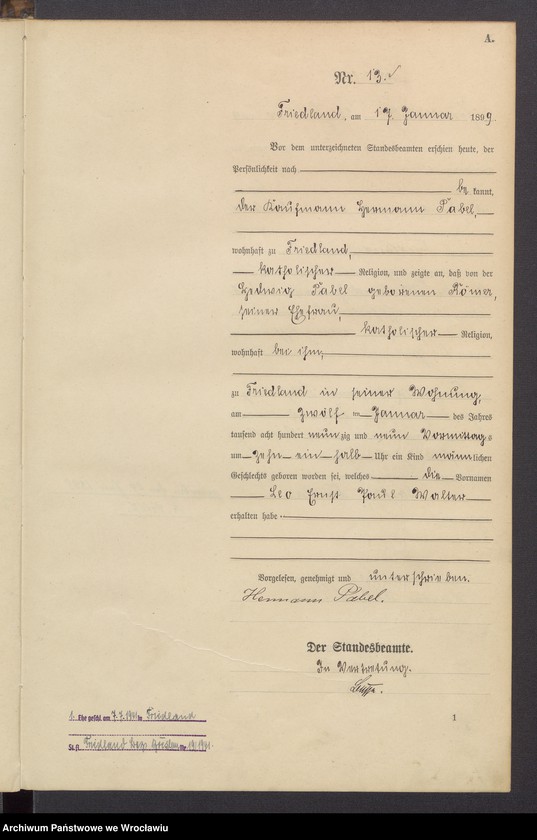 A.
Nr. 13.
Friedland, am 17. Januar 1899.
Vor dem unterzeichneten Standesbeamten erschien heute, der
Persönlichkeit nach
be kannt,
der Kaufmann Hermann Pabel,
wohnhaft zu Friedland,
katholischer Religion, und zeigte an, daß von der
Hedwig Pabel geborenen Römer,
seiner Ehefrau,
katholischer Religion,
wohnhaft bei ihm,
zu Friedland in seiner Wohnung,
am zwölf ten Januar des Jahres
tausend acht hundert neun zig und neun Vormittags
um zehn ein halb Uhr ein Kind männlichen
Geschlechts geboren worden sei, welches die Vornamen
Leo Ernst Paul Walter
erhalten habe.
Vorgelesen, genehmigt und unterschrieben.
Hermann Pabel.
Der Standesbeamte.
In Vertretung.
1. Ehe geschl. am 7.7. in Friedland
St. A. Friedland Nr.
1
Archiwum Państwowe we Wrocławiu